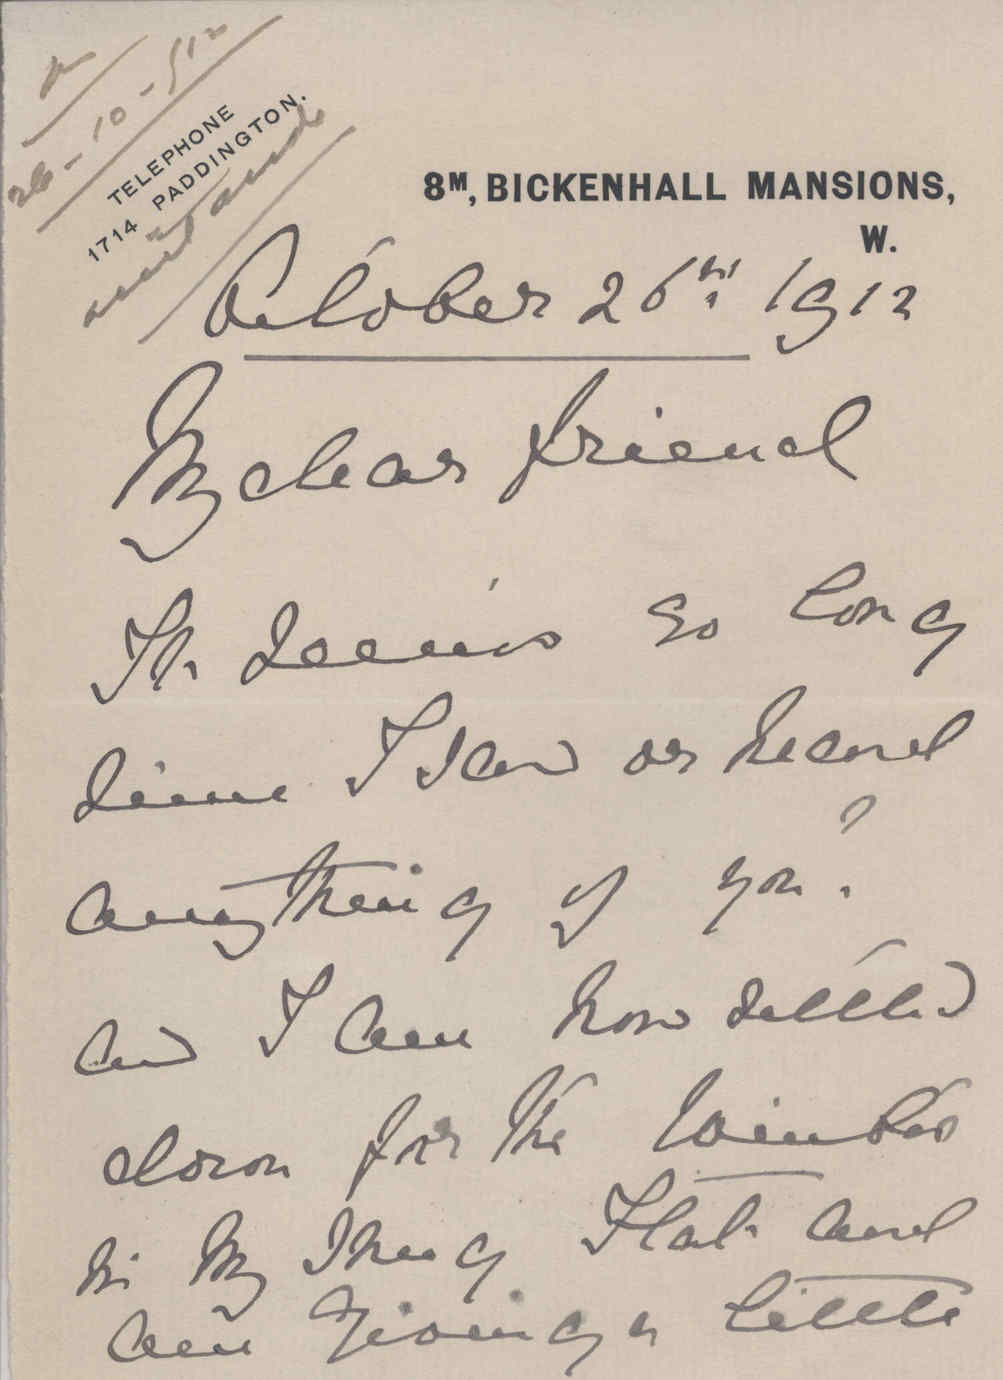 26-10-512
TELEPHONE
1714 PADDINGTON.
8M, BICKENHALL MANSIONS,
W.
October 26th 1912
My dear friend
It seems so long
since I saw or heard
anything of you?
and I am now settled
down for the winter
in my snug flat and
am giving a little